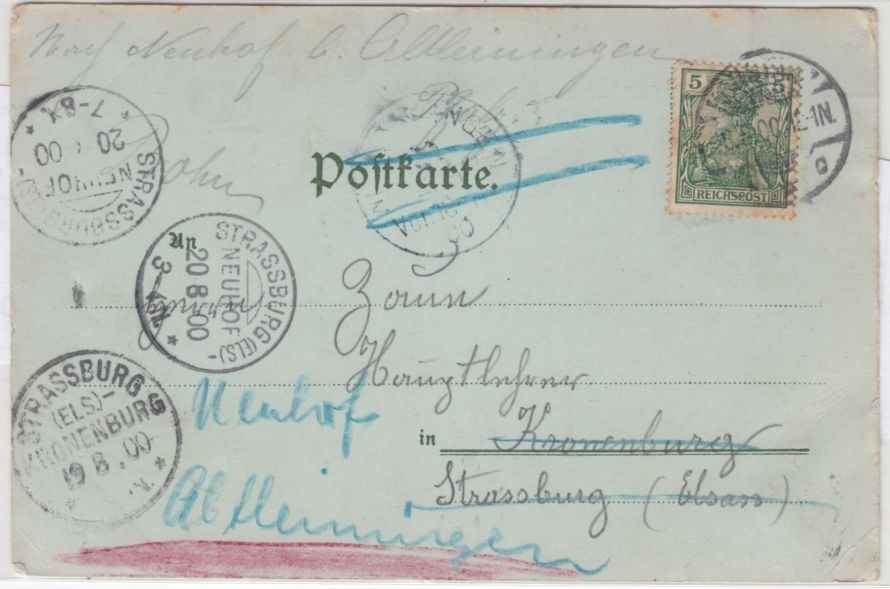 Nach Neuhof b. Altleiningen
Pfalz
5 5
REICHSPOST
12-1N.
STRASSBURG
NEUHOF
20 00
7-8V.
Postkarte.
An
STRASSBURG (ELS)-
NEUHOF
20 8 00
3-4N.
Herrn
Zann
Hauptlehrer
Neuhof
in Kronenburg
STRASSBURG
(ELS)-
KRONENBURG
19 8. 00
Strassburg (Elsass)
Altleiningen